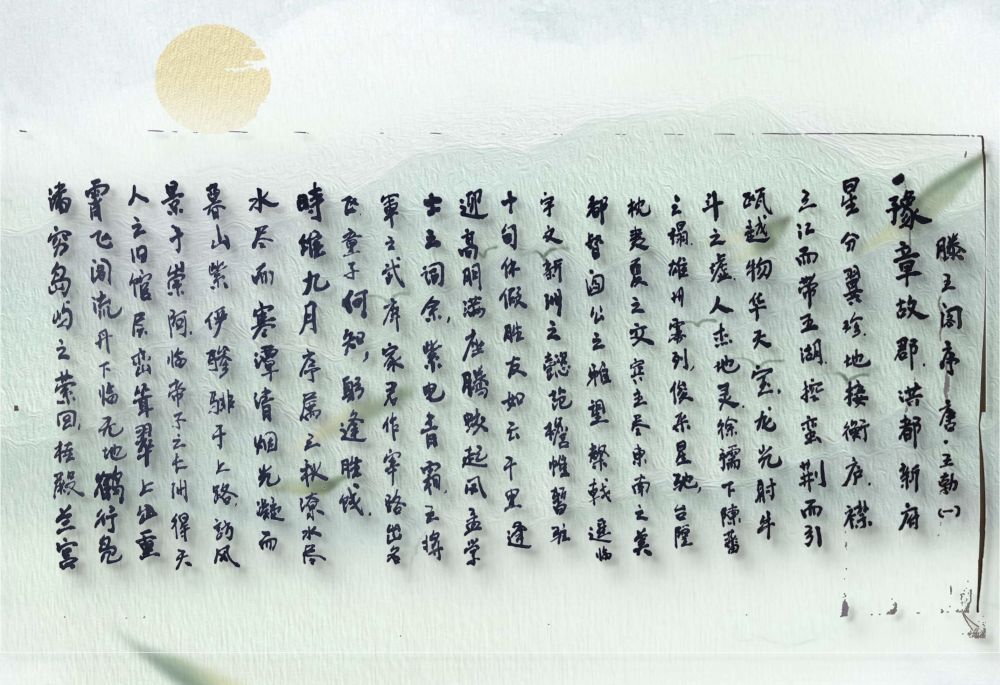 滕王阁序 唐·王勃(一)
豫章故郡.洪都新府
星分翼轸.地接衡庐.襟
三江而带五湖.控蛮荆而引
瓯越物华天宝.龙光射牛
斗之墟.人杰地灵.徐孺下陈蕃
之榻.雄州雾列,俊采星驰,台隍
枕夷夏之交宾主尽东南之美
都督阎公之雅望棨戟遥临
宇文新州之懿范襜帷暂驻
十旬休假胜友如云千里逢
迎高明满座腾蛟起凤孟学
士之词宗,紫电青霜.王将
軍之武库家君作宰路出名
区.童子何知,躬逢胜饯.
時维九月序属三秋潦水尽
水尽而寒潭清烟光凝而
暮山紫俨骖騑于上路.访风
景于崇阿.临帝子之长洲得天
人之旧馆层峦耸翠上出重
霄飞阁流丹下临无地鹤汀凫
渚穷岛屿之萦回,桂殿兰宫